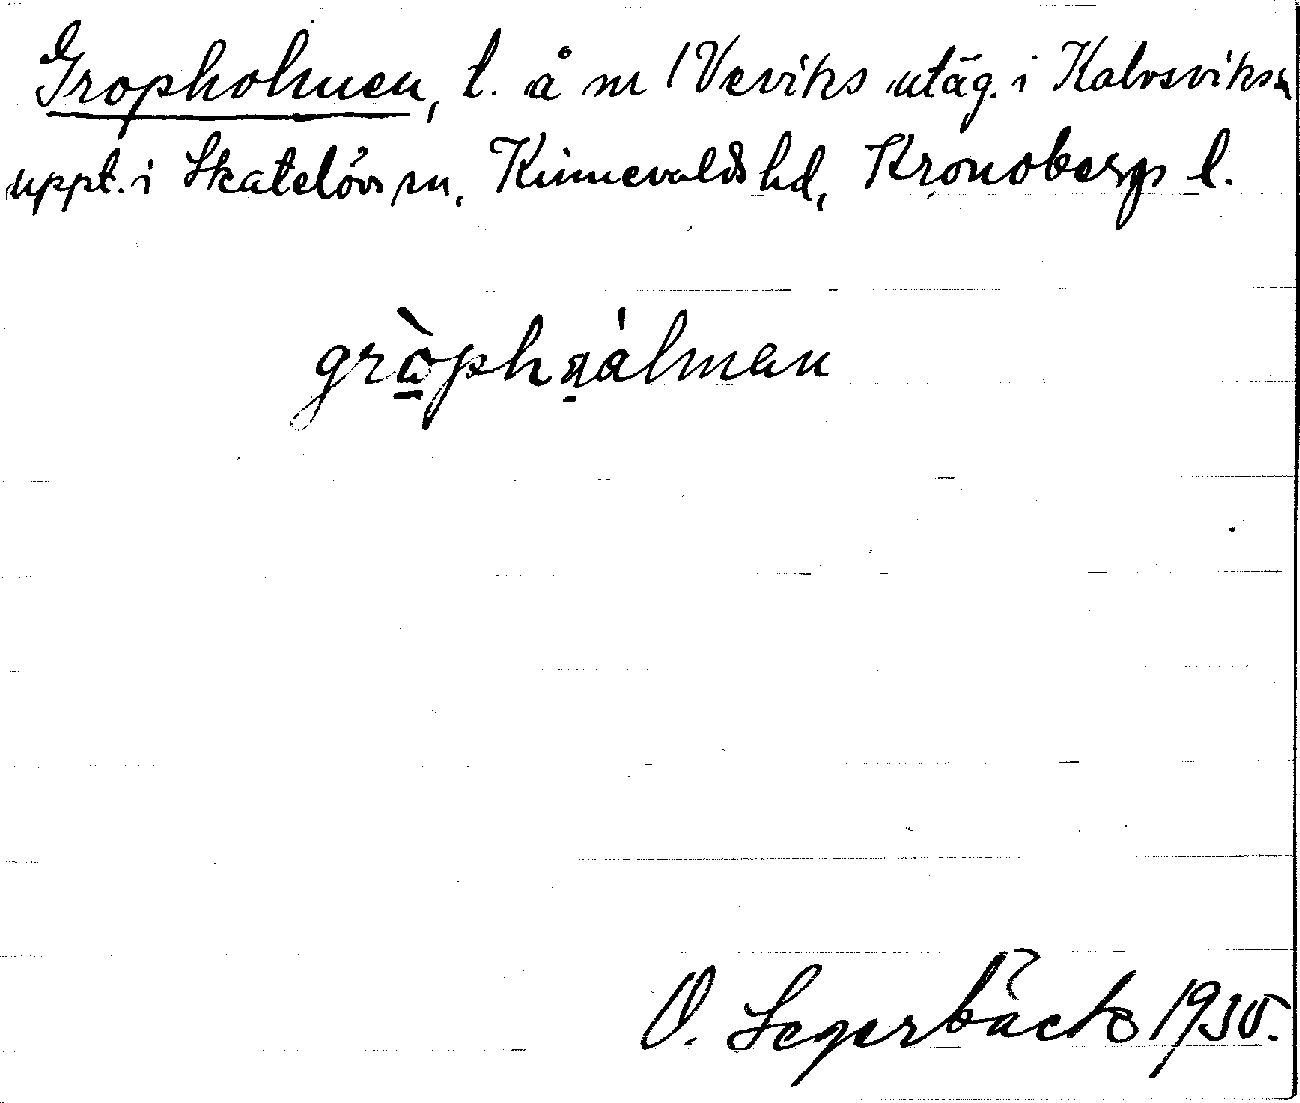 Gropholmen, l. å nr 1 Veviks utäg. i Kalvsviks sn
uppt. i Skatelövs sn, Kinnevalds hd, Kronobergs l.
gròphɑálmen
O. Segerbäck 1930.